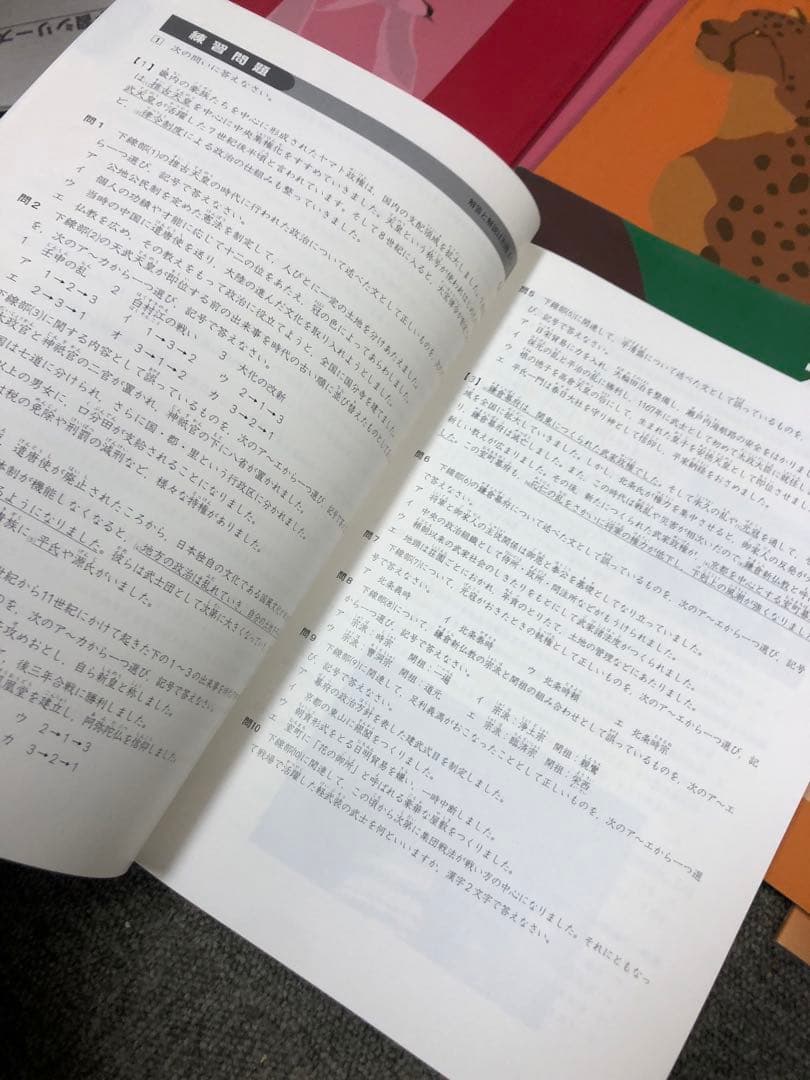 習シリーズ
練習問題
1 次の問いに答えなさい。
【1】 畿内の豪族たちを中心に形成されたヤマト政権は、国内の支配領域を拡大しました。
は、推古天皇を中心に中央集権化をすすめていきました。天皇という称号が使われはじめ
武天皇が活躍した7世紀後半頃と言われています。そして8世紀に入ると、大宝律令が
ど、律令制度による政治の仕組みも整っていきました。
問1 下線部(1)の推古天皇の時代に行われた政治について述べた文として正しいものを、次の
ら一つ選び、記号で答えなさい。
ア 公地公民制を定めた憲法を制定して、人びとに一定の土地を分けあたえました。
イ 個人の功績や才能に応じて十二の位をあたえ、冠の色によってあらわしました。
ウ 当時の中国に遣唐使を送り、大陸の進んだ文化を取り入れようとしました。
エ 仏教を広め、その教えをもって政治に役立てようと、全国に国分寺を建てました。
問2 下線部(2)の天武天皇が即位する前の出来事を時代の古い順に並び替えたものとして
を、次のア〜カから一つ選び、記号で答えなさい。
1 壬申の乱 2 白村江の戦い 3 大化の改新
ア 1→2→3 イ 1→3→2 ウ 2→1→3
エ 2→3→1 オ 3→1→2 カ 3→2→1
下線部(3)に関する内容として誤っているものを、次のア〜エから一つ選び、記号で
太政官と神祇官の二官が置かれ、神祇官の下に八省が置かれました。
国は七道に分けられ、さらに国・郡・里という行政区に分かれました。
以上の男女に、口分田が支給されることになりました。
は税の免除や刑罰の減刑など、様々な特権がありました。
、遣唐使が廃止されたころから、日本独自の文化である国風文化
体制が機能しなくなると、地方の政治は乱れていき、自分の土地を
るようになりました。彼らは武士団として次第に大きくなってい
族に平氏や源氏がいました。
世紀から11世紀にかけて起きた下の1〜3の出来事を
のを、次のア〜カから一つ選び、記号で答えなさい。
を攻めおとし、自ら新皇と称しました。
、後三年合戦に勝利しました。
凰堂を建立し、阿弥陀仏を信仰しました
ウ 2→1→3
カ 3→2→1
問5 下線部(5)に関連して、平清盛について述べた文として誤っているものを、
び、記号で答えなさい。
ア 日宋貿易に力を入れ、大輪田泊を整備し、瀬戸内海航路の安全をはかり
イ 保元の乱と平治の乱に勝利し、1167年に武士として初めて太政大臣に就任し
ウ 娘の徳子を高倉天皇の后にして、生まれた皇子を安徳天皇として即位させまし
エ 平氏一門は春日大社を守り神として信仰し、平家納経をおさめました。
【3】 鎌倉幕府は、関東につくられた武家政権でした。そして承久の乱や元寇を通して、
域を全国に拡大していきました。しかし、北条氏が権力を集中させると、御家人の反発が
り、鎌倉幕府は滅亡しました。また、この時代は戦乱や災害が相次いだので、鎌倉新仏教と
新しい教えが広まりました。その後、新たにつくられた武家政権が、京都を中心とする室町幕
した。この室町幕府も、応仁の乱をさかいに将軍の権力が低下し、下剋上の風潮が強くなりま
問6 下線部(6)の鎌倉幕府について述べた文として誤っているものを、次のア〜エから一つ選び、記号
で答えなさい。
ア 将軍と御家人の主従関係は御恩と奉公を基礎としてなり立っていました。
イ 中央の政治組織として侍所・政所・問注所などがもうけられました。
ウ 頼朝以来の武家社会のしきたりをもとにして武家諸法度がつくられました。
エ 地頭は荘園ごとにおかれ、年貢のとりたて、土地の管理などにあたりました。
問7 下線部(7)について、元寇がおきたときの執権として正しいものを、次のア〜エから一つ選び、記
号で答えなさい。
ア 北条義時 イ 北条泰時 ウ 北条時頼 エ 北条時宗
問8 下線部(8)について、鎌倉新仏教の宗派と開祖の組み合わせとして誤っているものを、次のア〜エ
から一つ選び、記号で答えなさい。
ア 宗派:時宗 開祖:一遍 イ 宗派:浄土宗 開祖:親鸞
ウ 宗派:曹洞宗 開祖:道元 エ 宗派:臨済宗 開祖:栄西
問9 下線部(9)に関連して、足利義満がおこなったこととして正しいものを、次のア〜エから一つ選
び、記号で答えなさい。
ア 幕府の政治方針を表した建武式目を制定しました。
イ 京都の東山に銀閣をつくりました。
ウ 朝貢形式をとる日明貿易を嫌い、一時中断しました。
エ 室町に「花の御所」と呼ばれる豪華な屋敷をつくりました。
問10 下線部(10)に関連して、この頃から次第に集団戦法が戦い方の中心になりました。それにともなっ
て戦場で活躍した軽武装の武士を何といいますか、漢字2文字で答えなさい。